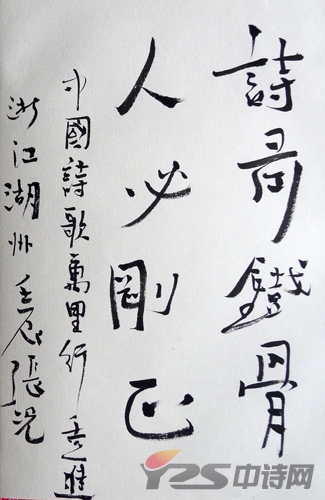 詩鐵骨
人必剛正
中國詩歌萬里行
浙江湖州 壬辰 張況
中诗网